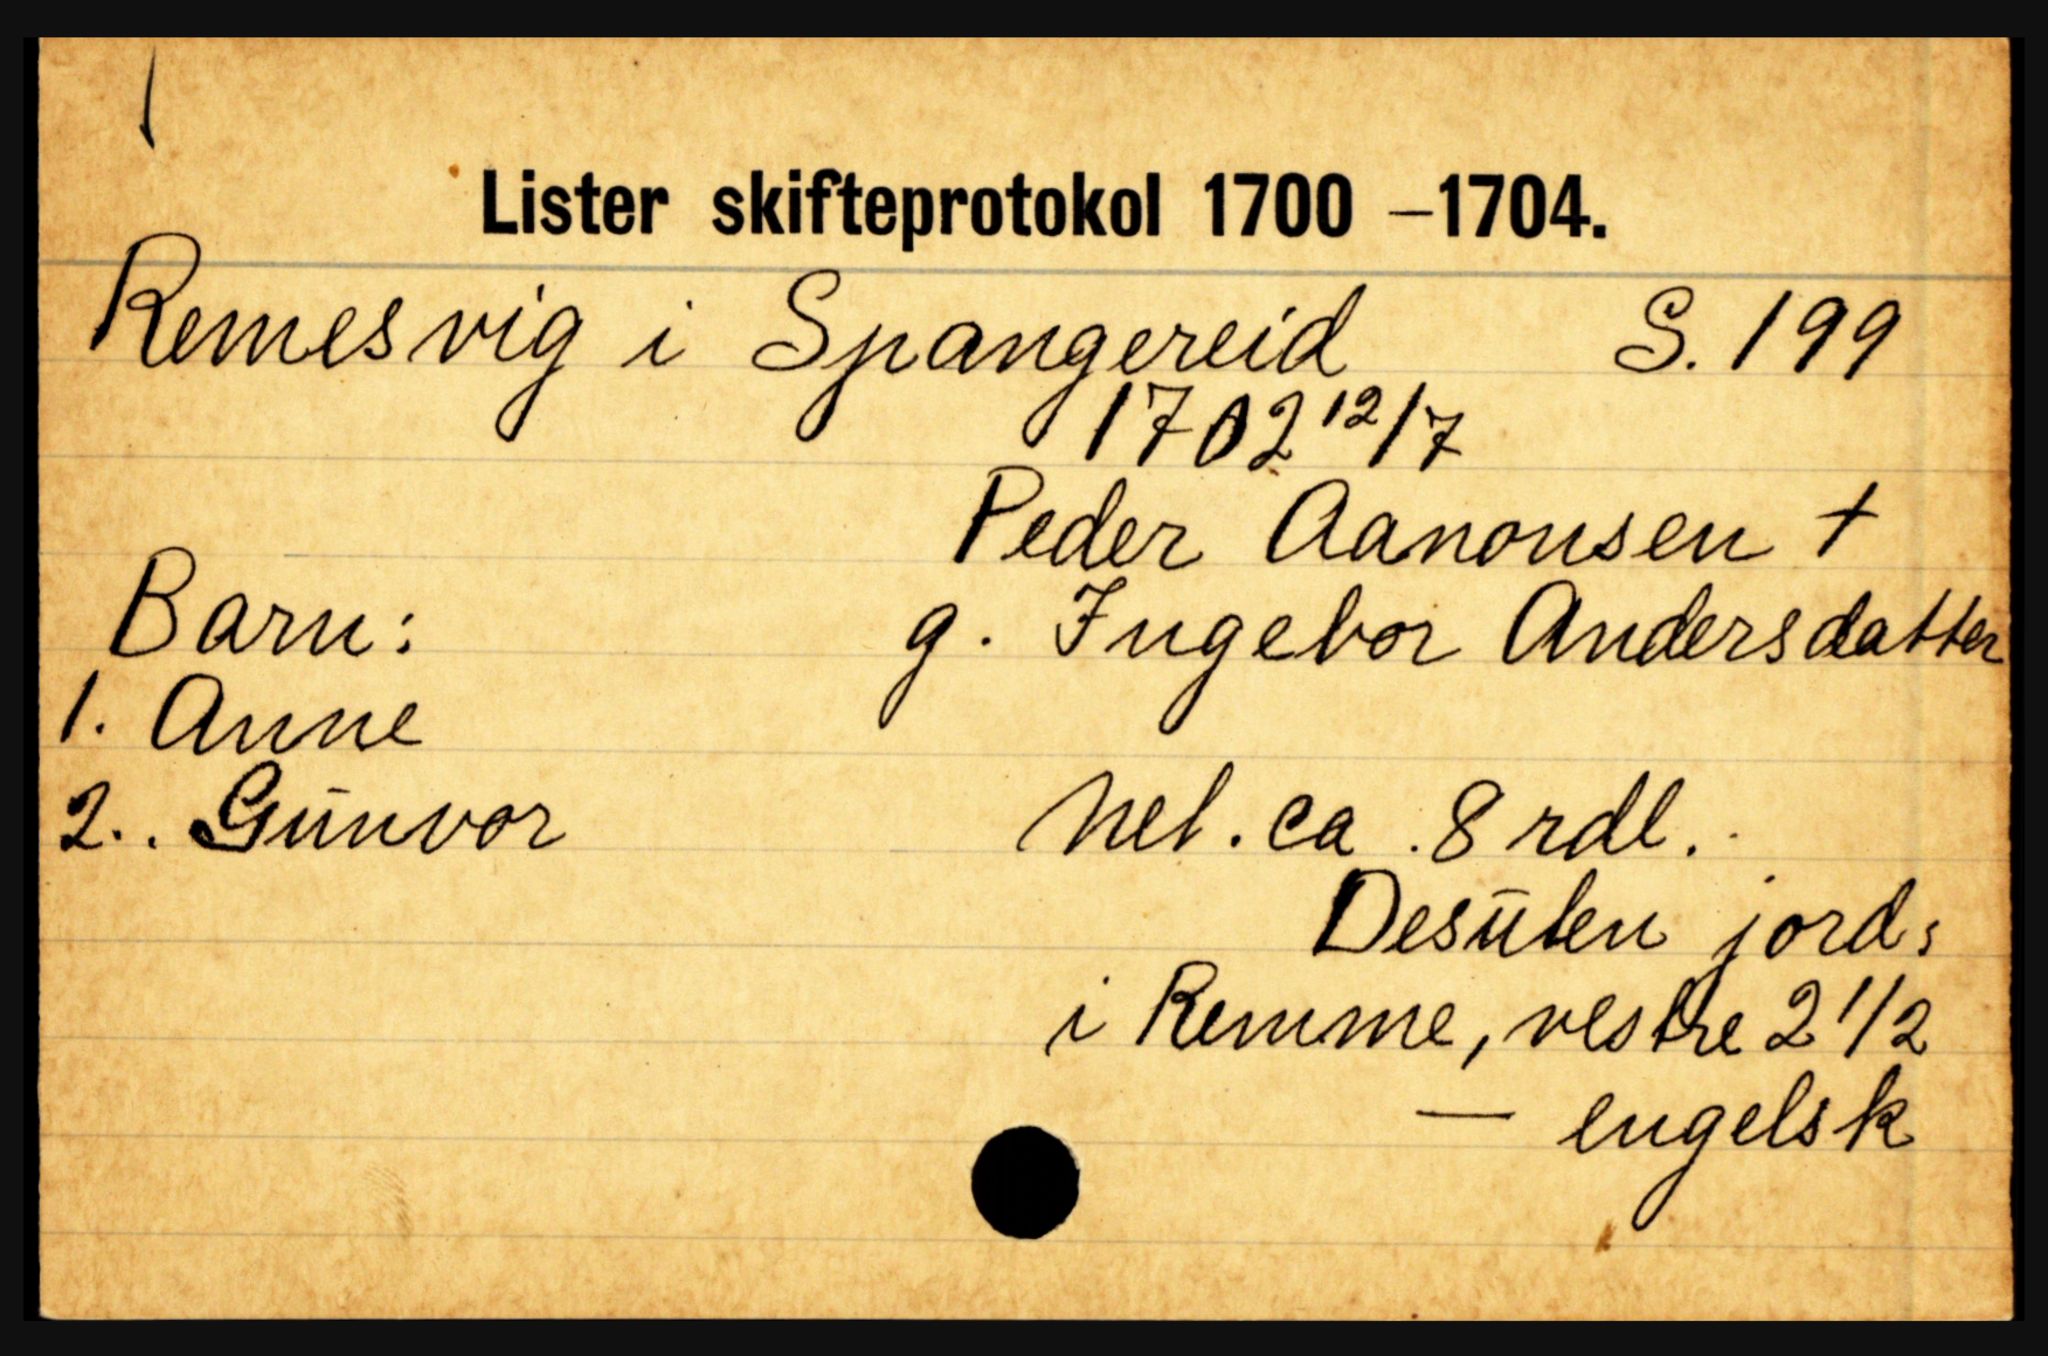 Lister skifteprotokol 1700 –1704.
Remesvig i Spangereid S. 199
1702 12/7
Peder Aanonsen †
Barn: g. Ingebor Andersdatter
1. Anne
2. Gunvor Net. ca. 8 rdl.
Desuten jord:
i Remme, vestre 2 1/2
— engelsk